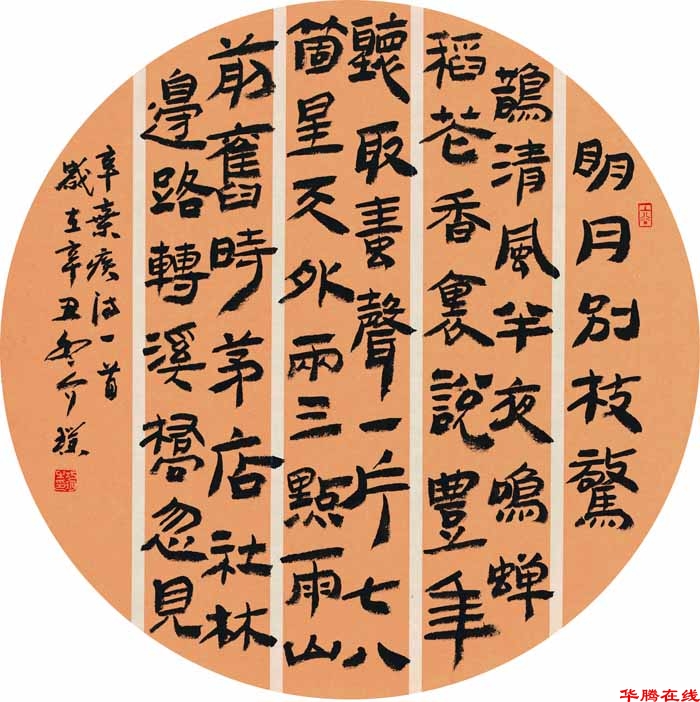 明月别枝驚
鵲清風半夜鳴蝉
稻花香裏說豐年
聽取蛙聲一片七八
箇星天外兩三點雨山
前舊時茅店社林
邊路轉溪橋忽見
辛棄疾詩一首
歲在辛丑
华腾在线